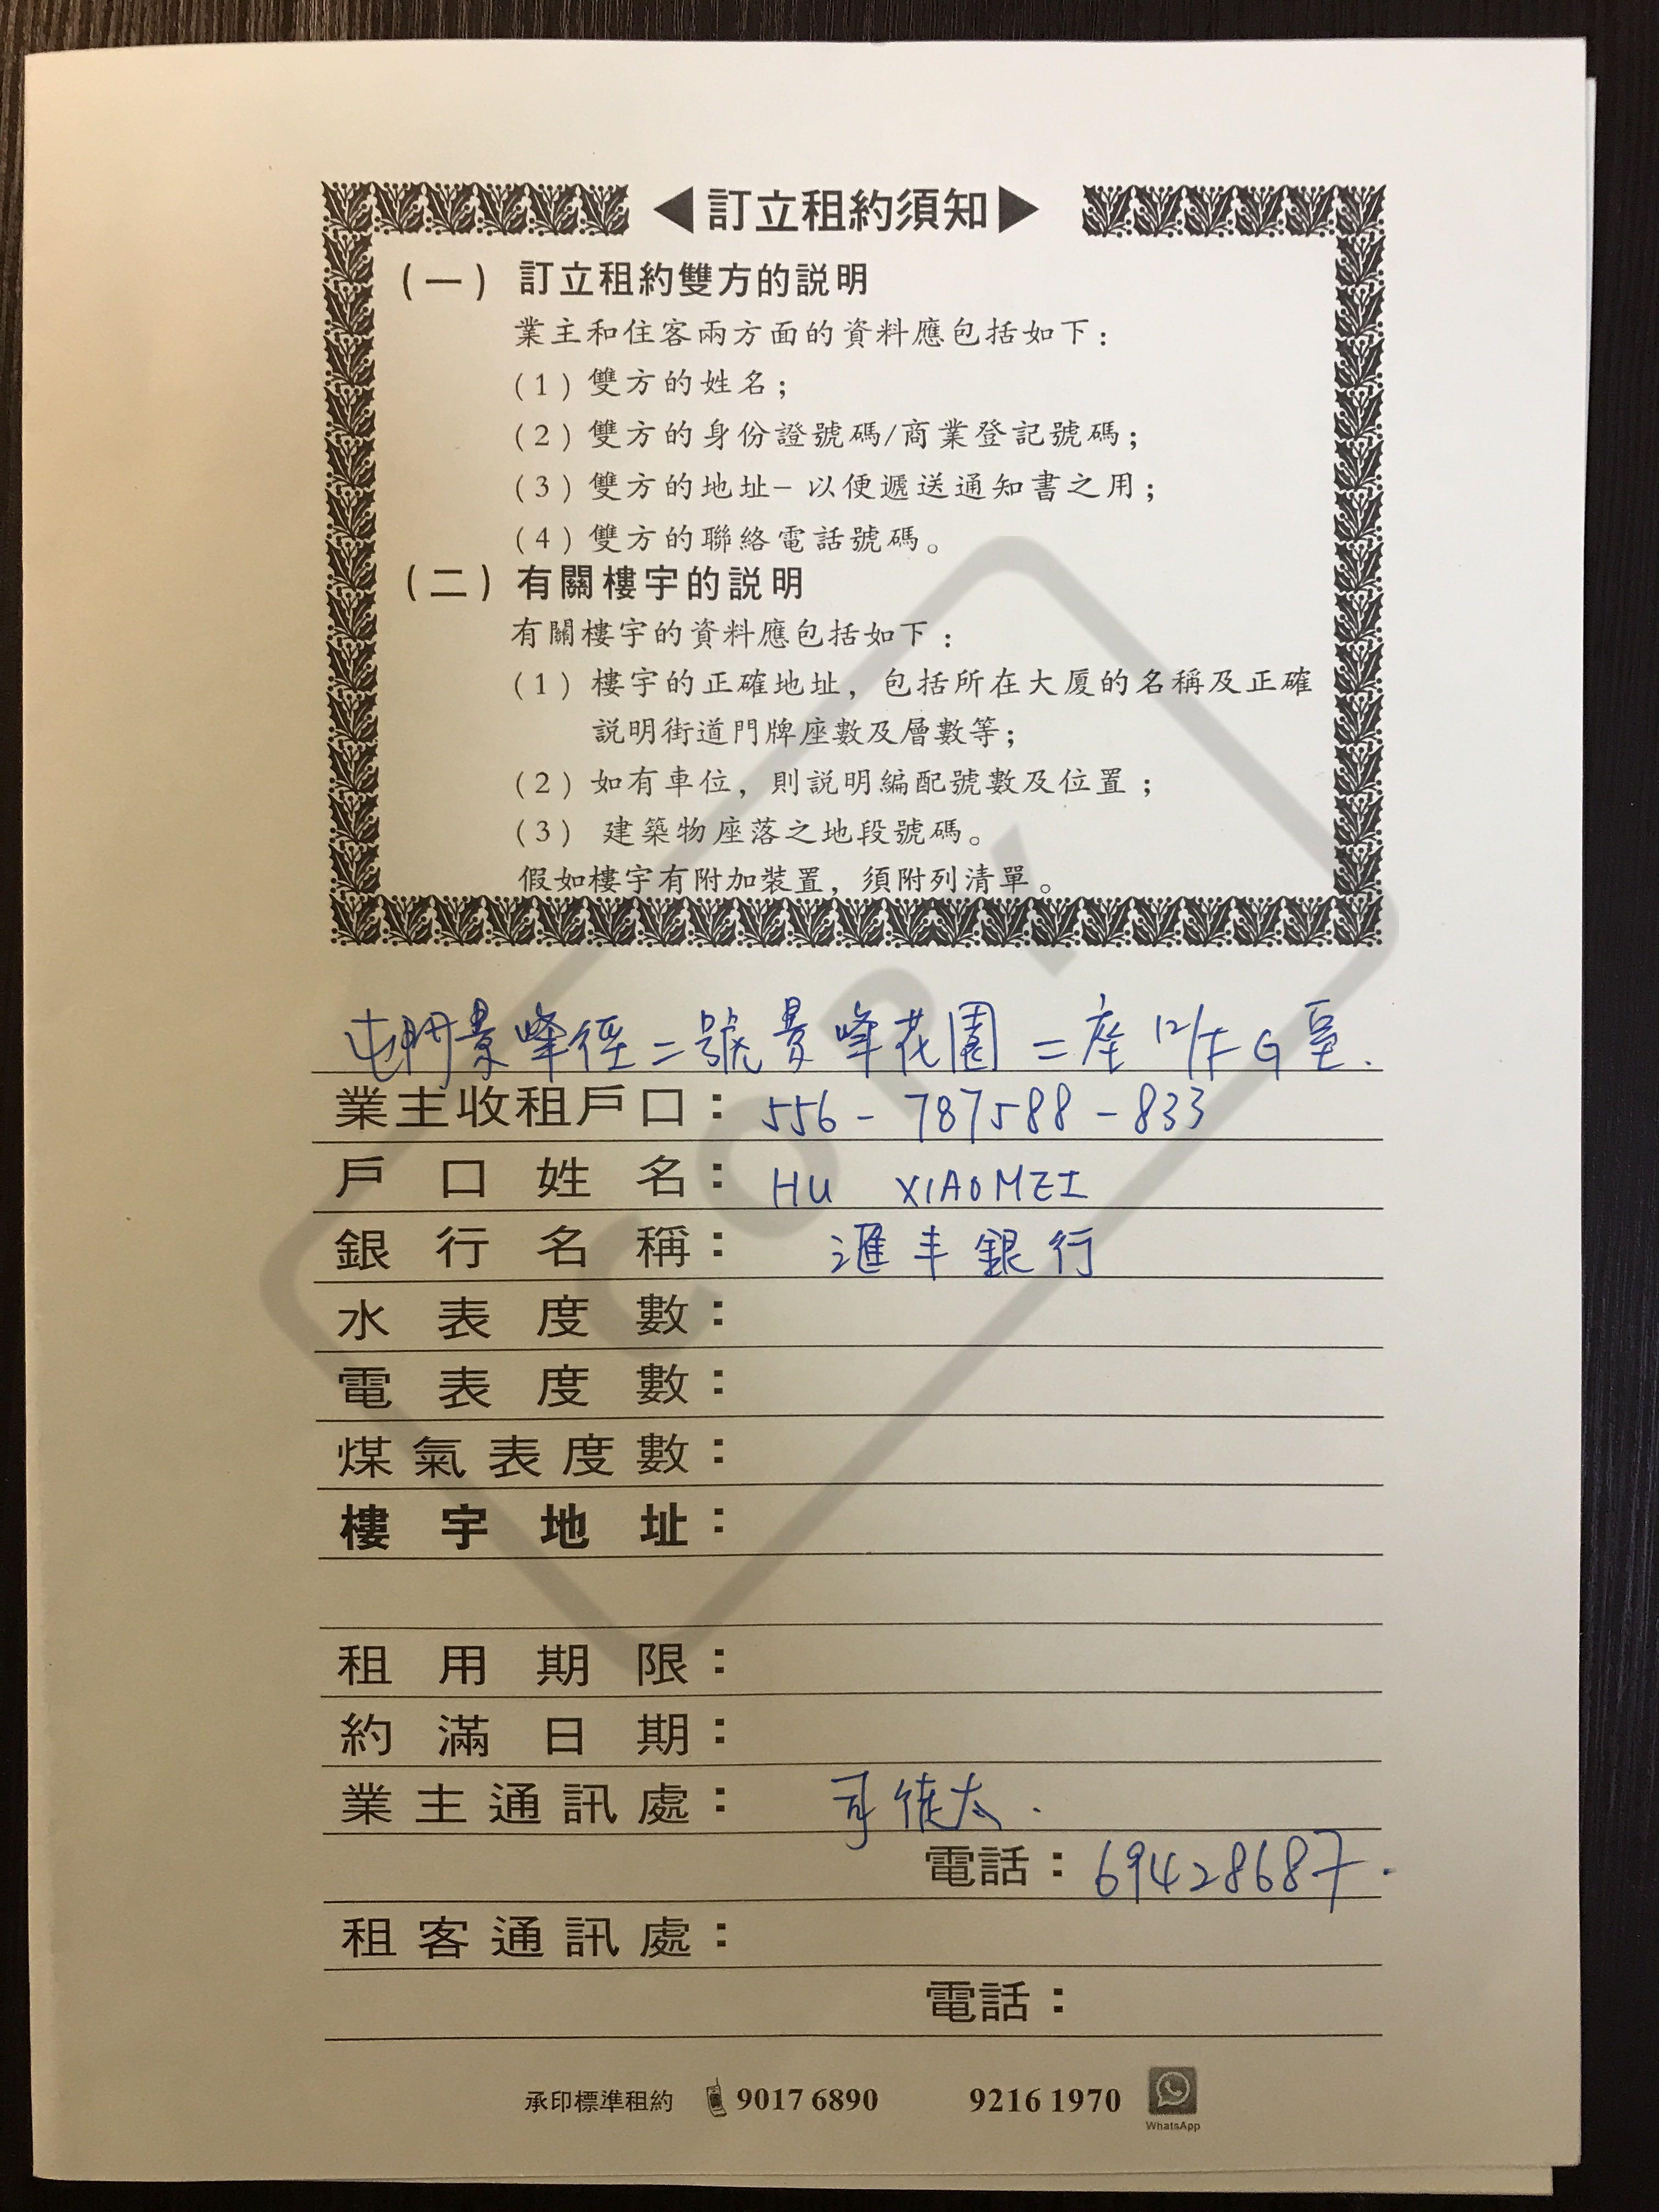 ◀訂立租約須知▶
(一) 訂立租約雙方的説明
業主和住客兩方面的資料應包括如下：
(1) 雙方的姓名；
(2) 雙方的身份證號碼/商業登記號碼；
(3) 雙方的地址– 以便遞送通知書之用；
(4) 雙方的聯絡電話號碼。
(二) 有關樓宇的説明
有關樓宇的資料應包括如下：
(1) 樓宇的正確地址，包括所在大廈的名稱及正確
説明街道門牌座數及層數等；
(2) 如有車位，則説明編配號數及位置；
(3) 建築物座落之地段號碼。
假如樓宇有附加裝置，須附列清單。
COPY
屯門景峰徑二號景峰花園二座12/F G室.
業主收租戶口：556-787588-833
戶口姓名：HU XIAOMEI
銀行名稱：滙丰銀行
水表度數：
電表度數：
煤氣表度數：
樓宇地址：
租用期限：
約滿日期：
業主通訊處：太.
電話：69428687.
租客通訊處：
電話：
承印標準租約 9017 6890 9216 1970
WhatsApp